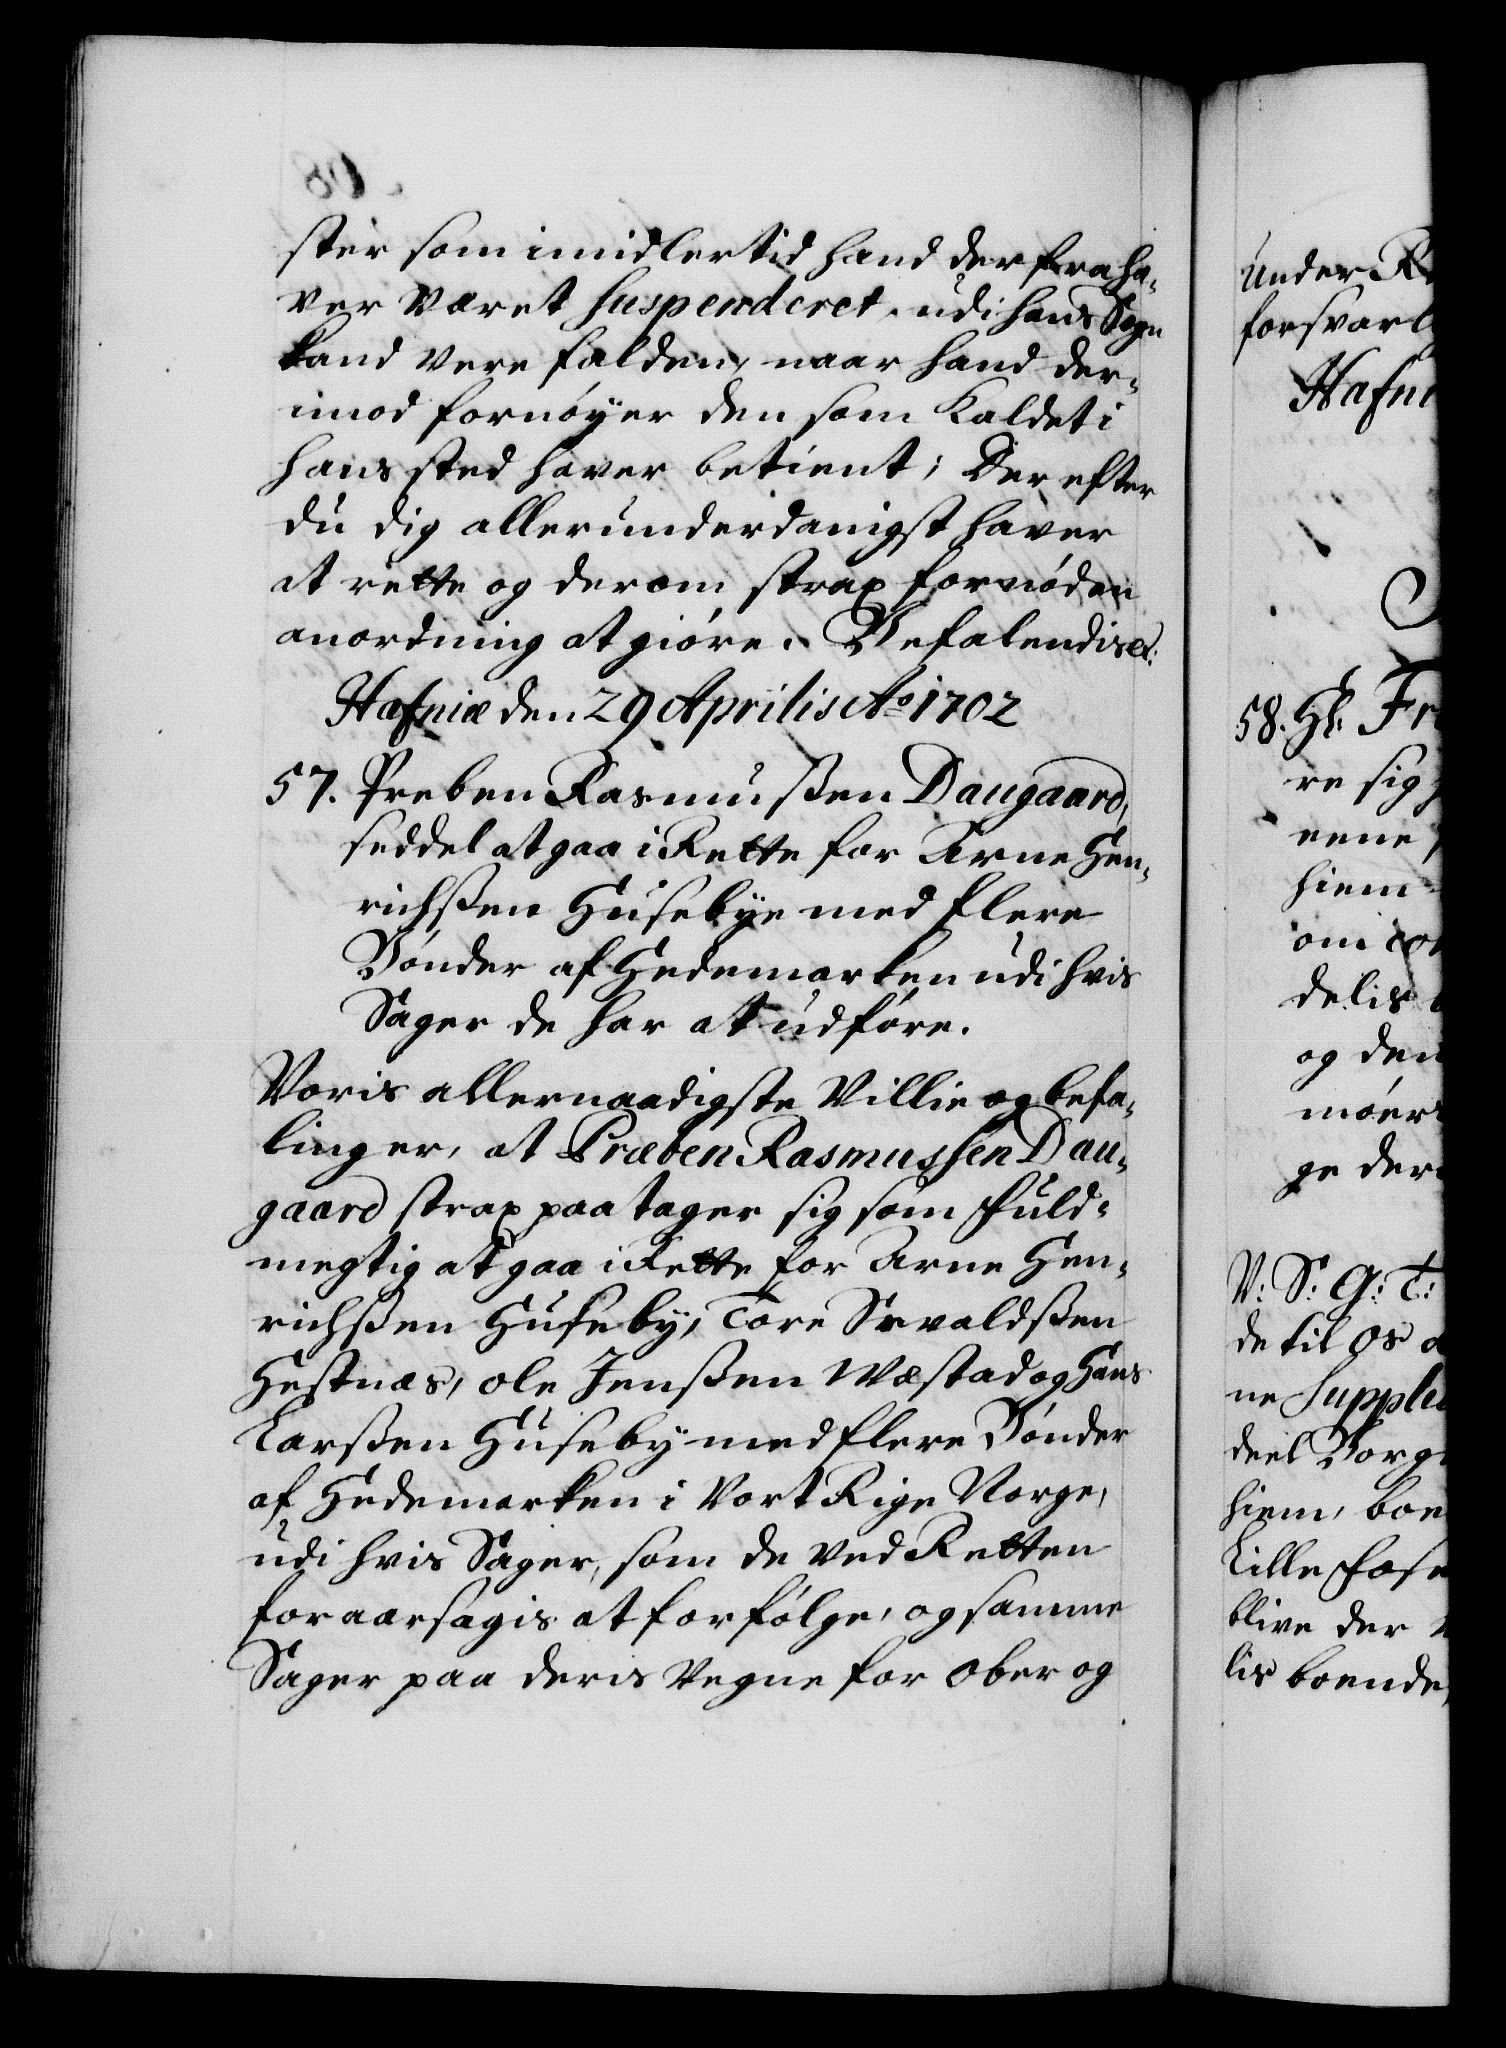 ster som imidlertid hand derfra ha-
ver været suspenderet, udi hans Sogn
kand vere falden, naar hand der-
imod fornöyer den som Kaldet i
hans sted haver betient; Der efter
du dig allerunderdanigst haver
at rette og derom strax fornöden
anordning at giöre. Befalendis etc:
Hafniæ den 29 Aprilis Ao 1702
57. Preben Rasmussen Daugaard,
seddel at gaa i Rette for Arne Hen-
richssen Husebye med flere
Bönder af Hedemarken udi hvis
Sager de har at udföre.
Voris allernaadigste Villie og befa-
ling er, at Præben Rasmussen Dau-
gaard strax paatager sig som fuld-
megtig at gaa i Rette for Arne Hen-
richssen Huseby, Tore Sevaldssen
Hestnæs, ole Jenssen Wæstad og Hans
Larssen Huseby med flere Bönder
af Hedemarken i Vort Rige Norge,
udi hvis Sager, som de ved Retten
foraarsagis at forfölge, og samme
Sager paa deris Vegne for Ober og
under
forsvarl
Hafni
58. Hr. Fr
re sig
eene
hiem
om
delis
og den
möer
ge der
V: S: G: T:
de til os a
ne Supplic
deel Borg
hiem, boe
Lille Fose
blive der
lis boende,